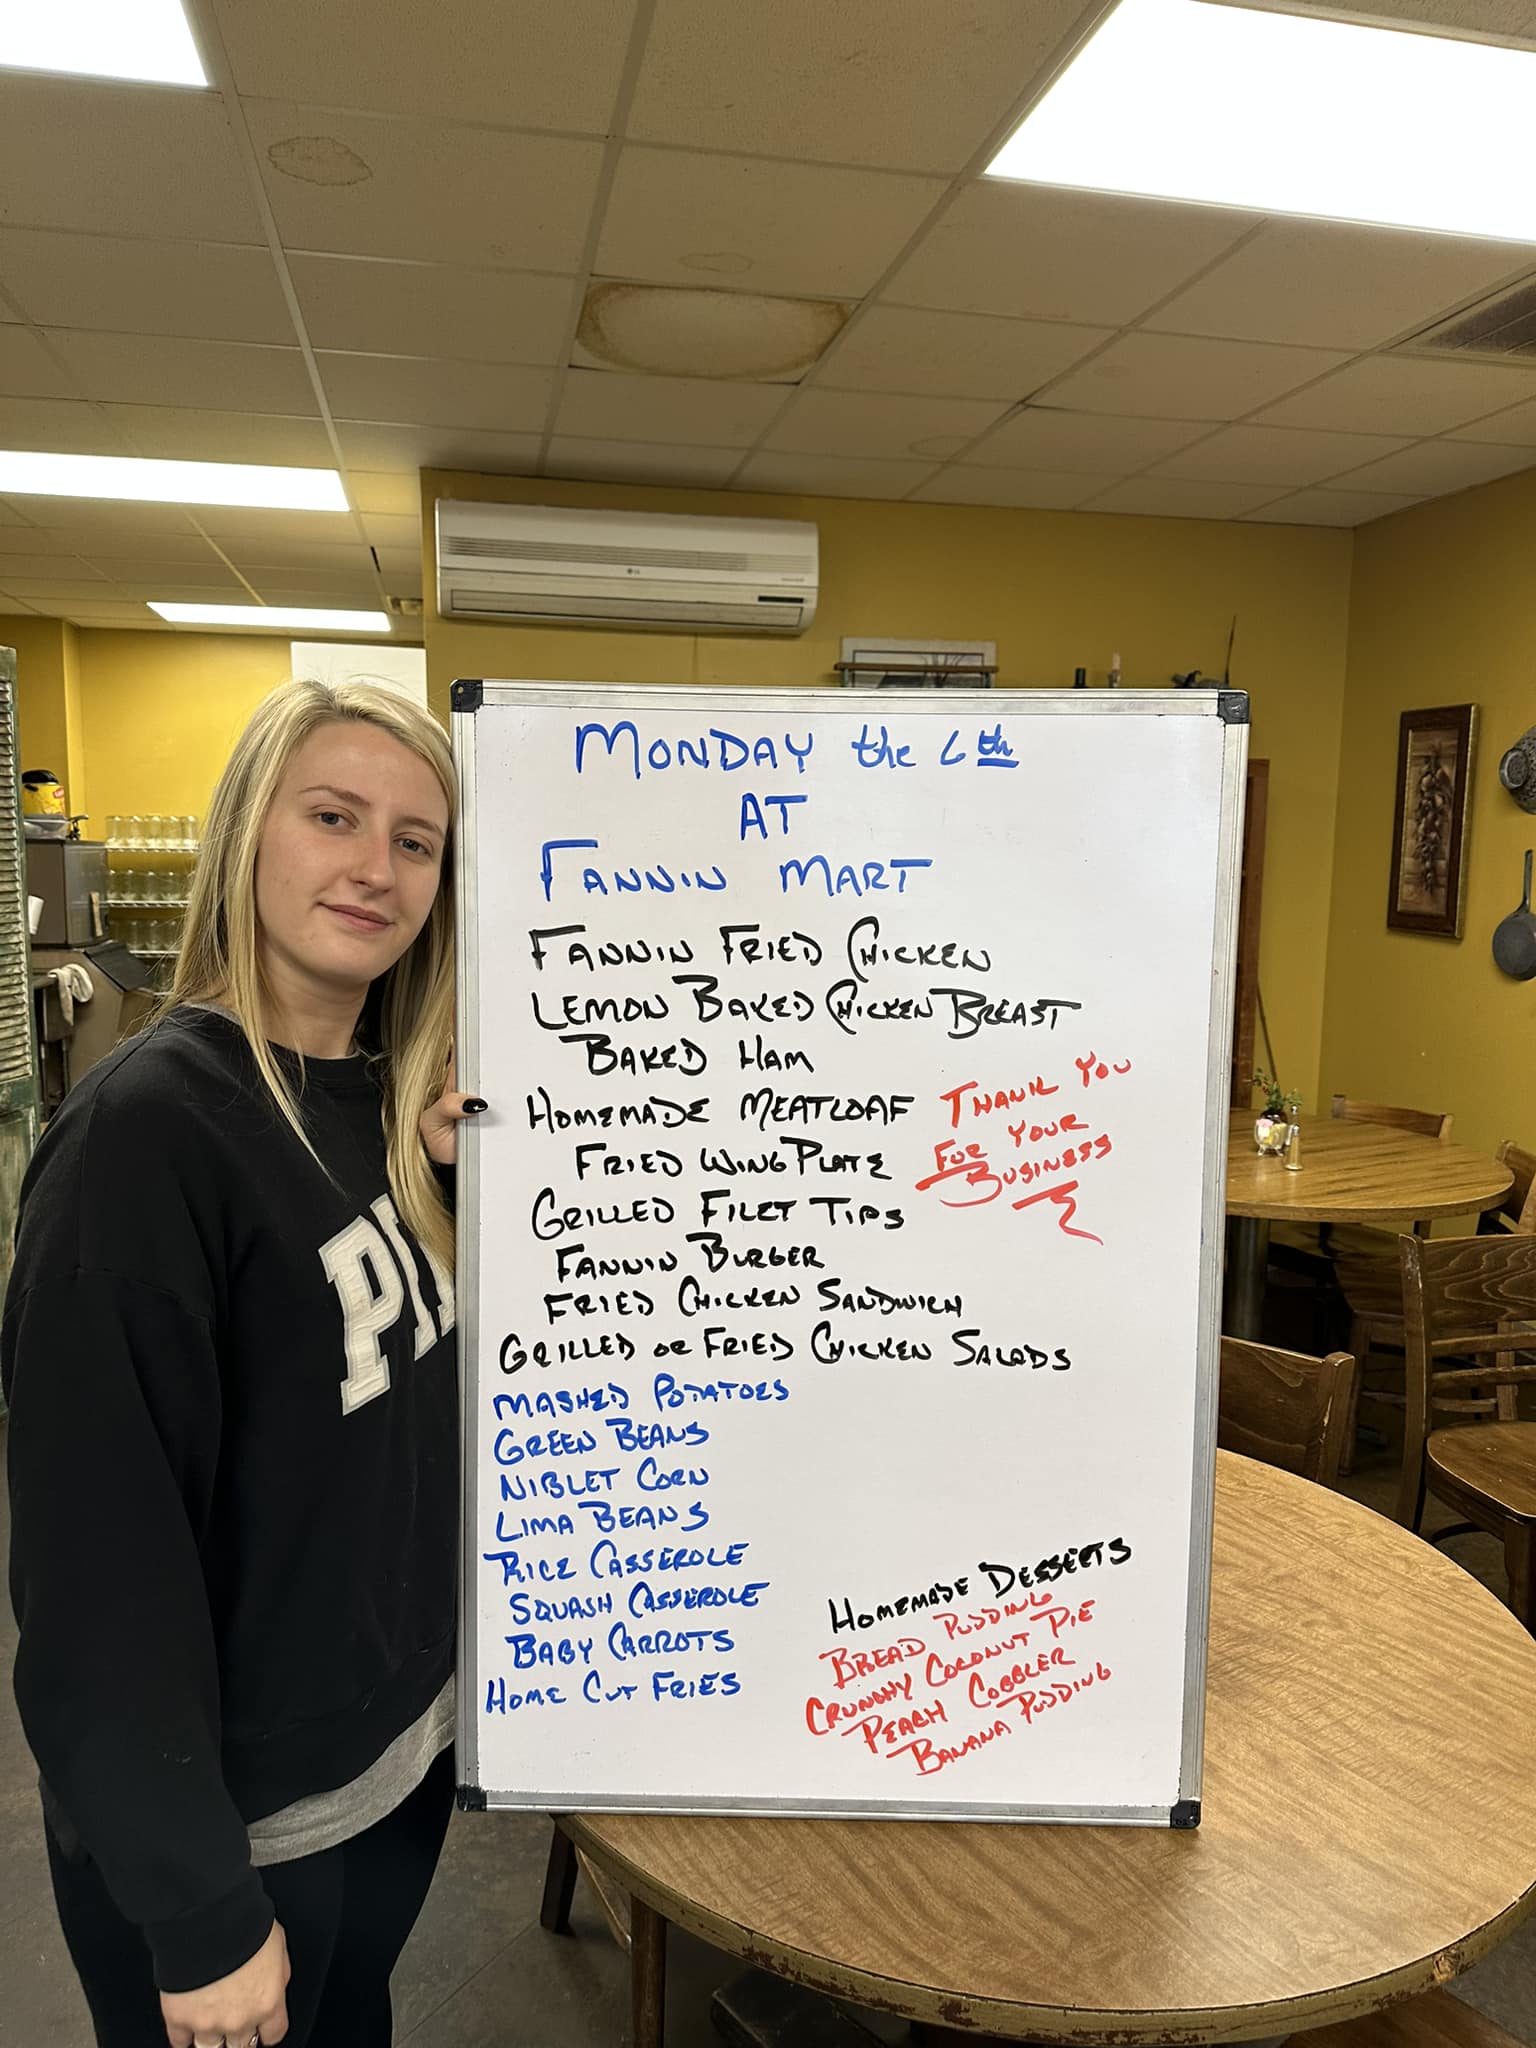 MONDAY the 6th
AT
FANNIN MART
FANNIN FRIED CHICKEN
LEMON BAKED CHICKEN BREAST
BAKED HAM
HOMEMADE MEATLOAF
FRIED WING PLATE
GRILLED FILET TIPS
FANNIN BURGER
FRIED CHICKEN SANDWICH
GRILLED OR FRIED CHICKEN SALADS
THANK YOU
FOR YOUR
BUSINESS
MASHED POTATOES
GREEN BEANS
NIBLET CORN
LIMA BEANS
RICE CASSEROLE
SQUASH CASSEROLE
BABY CARROTS
HOME CUT FRIES
HOMEMADE DESSERTS
BREAD PUDDING
CRUNCHY COCONUT PIE
PEACH COBBLER
BANANA PUDDING
LG